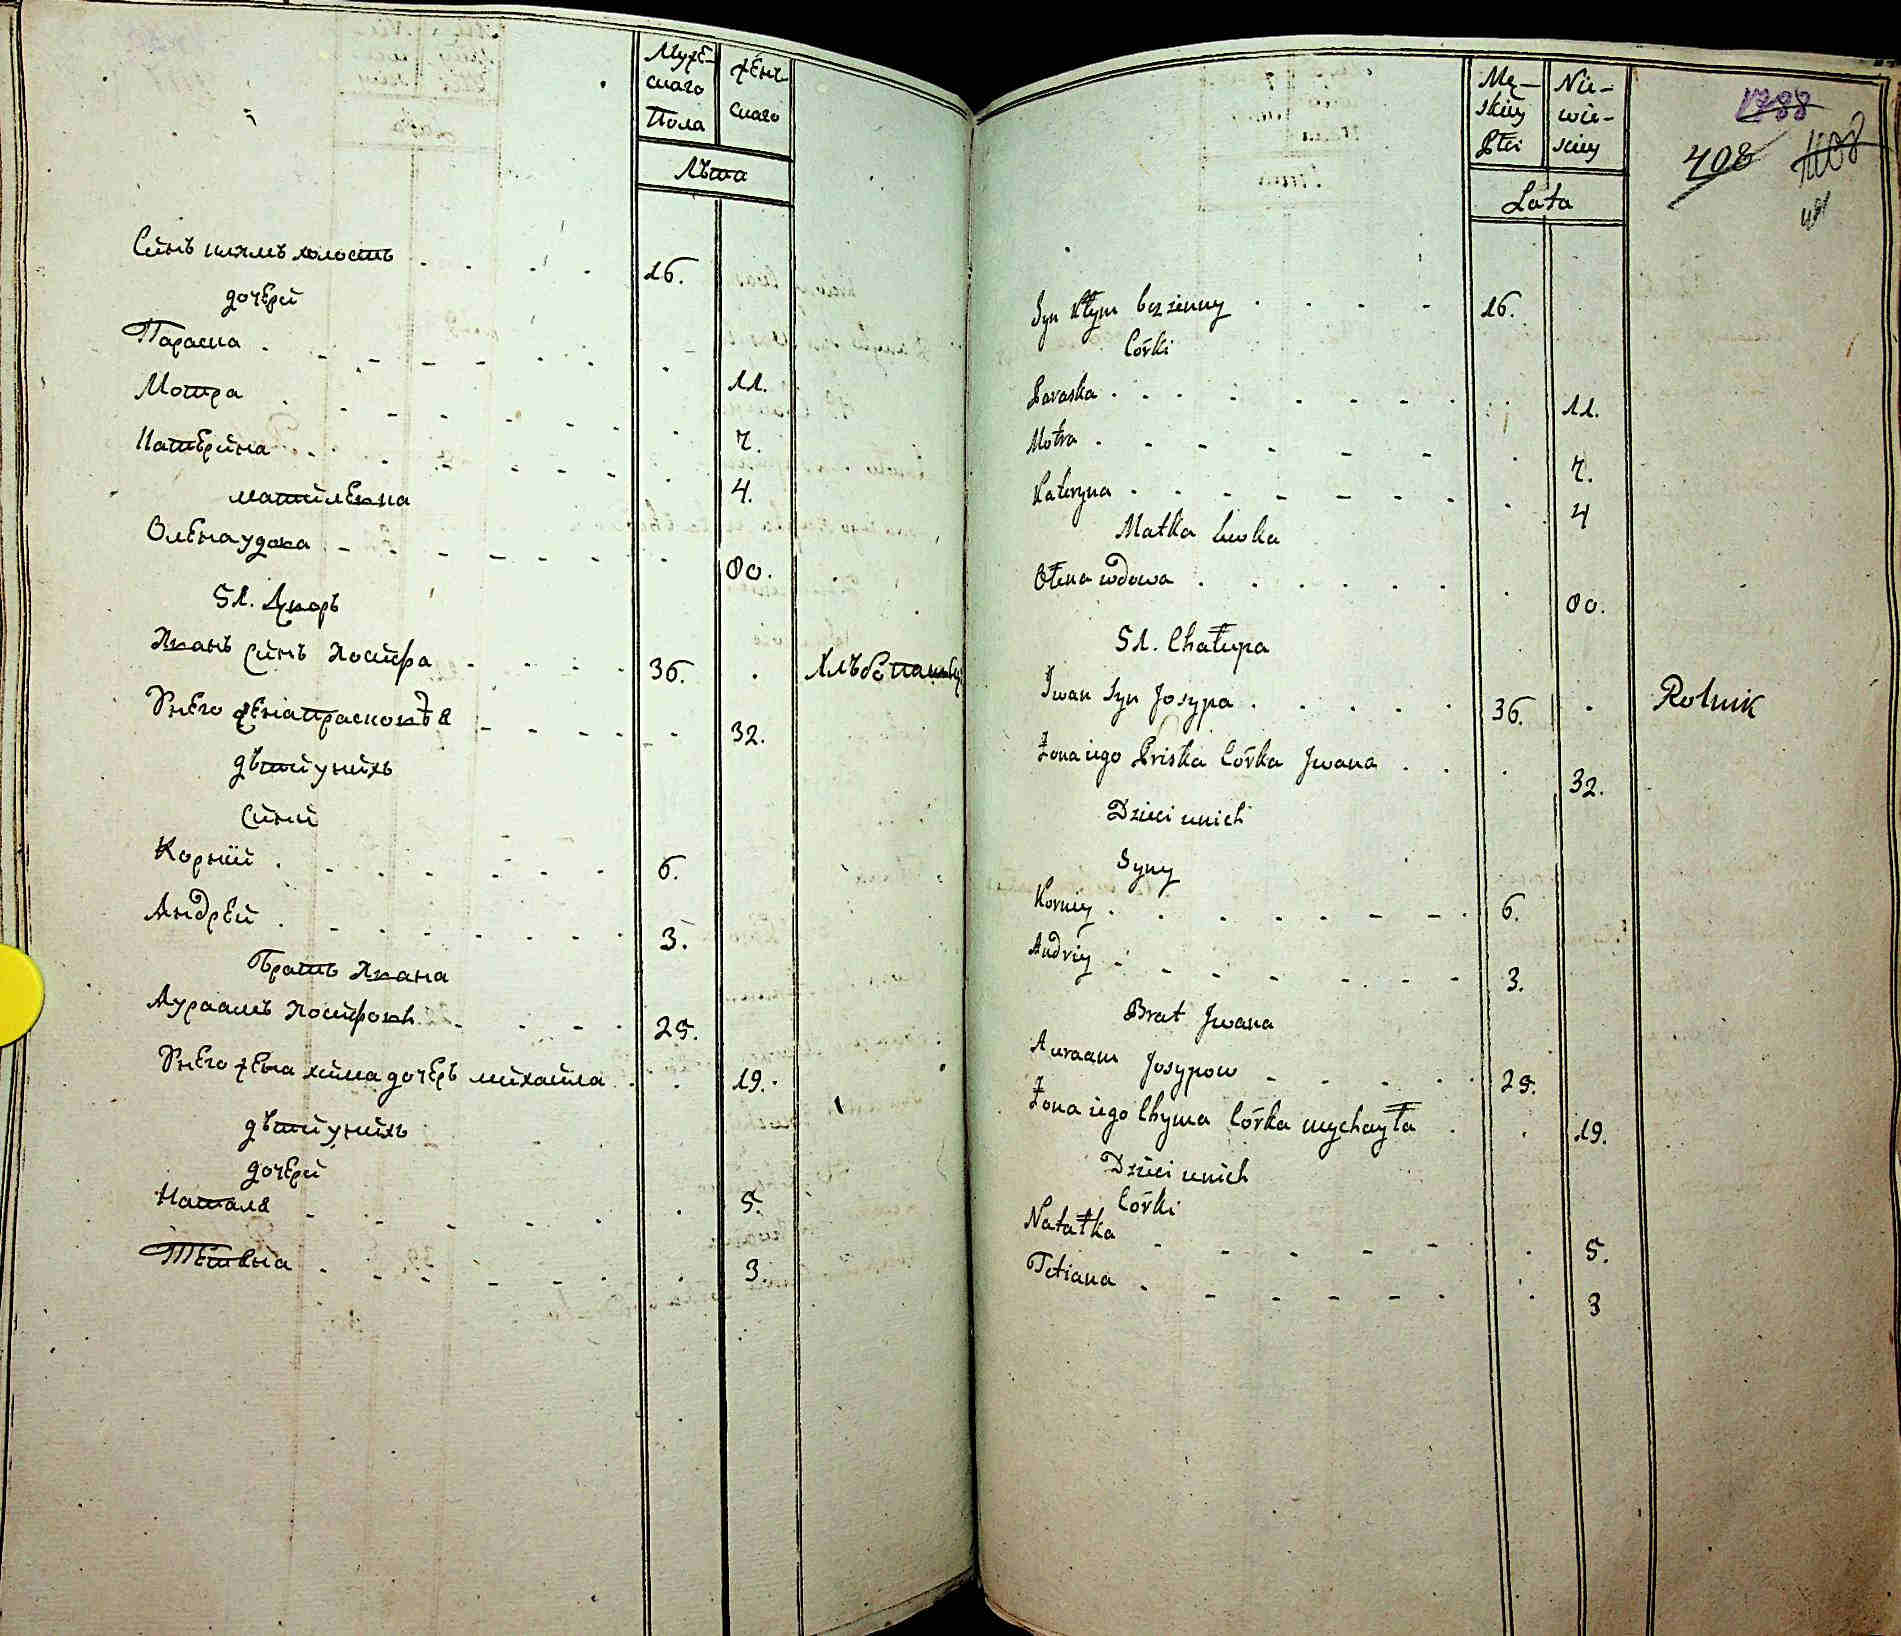 Мужε-
скаго
Пола
жεнь
скаго
Лѣта
Синъ климъ холостъ 16.
дочεри
Параска 11.
Мотра 7.
Катεрина 4.
мати лεвка
Олεна удова 80.
51. Дворъ
Иванъ Синъ Иосифа 36. Хлѣбопашεц
У нεго жεна
32.
дѣти у нихъ
Сини
Корнїй 6.
Андрεй 3.
Братъ Ивана
Авраамъ Иосифовъ 25.
У нεго жεна хима дочεръ михаила 19.
дѣти у нихъ
дочεри
Наталя 5.
Тεтяна 3
Mę-
skiey
Płci
Nie-
wie-
sciey
Lata
1788
408
Syn Kłym bezzenny 16.
Corki
Paraska 11.
Motra 7.
Kateryna 4
Matka Lewka
Ołena wdowa 80.
51. Chałupa
Jwan Syn Josypa 36. Rolnik
Żona iego Priska Córka Jwana 32.
Dzieci u nich
Syny
Korniy 6.
Andriy 3.
Brat Jwana
Awraam Josypow 25.
Żona iego Chyma Córka mychayła 19.
Dzieci u nich
Córki
Natałka 5.
Tetiana 3